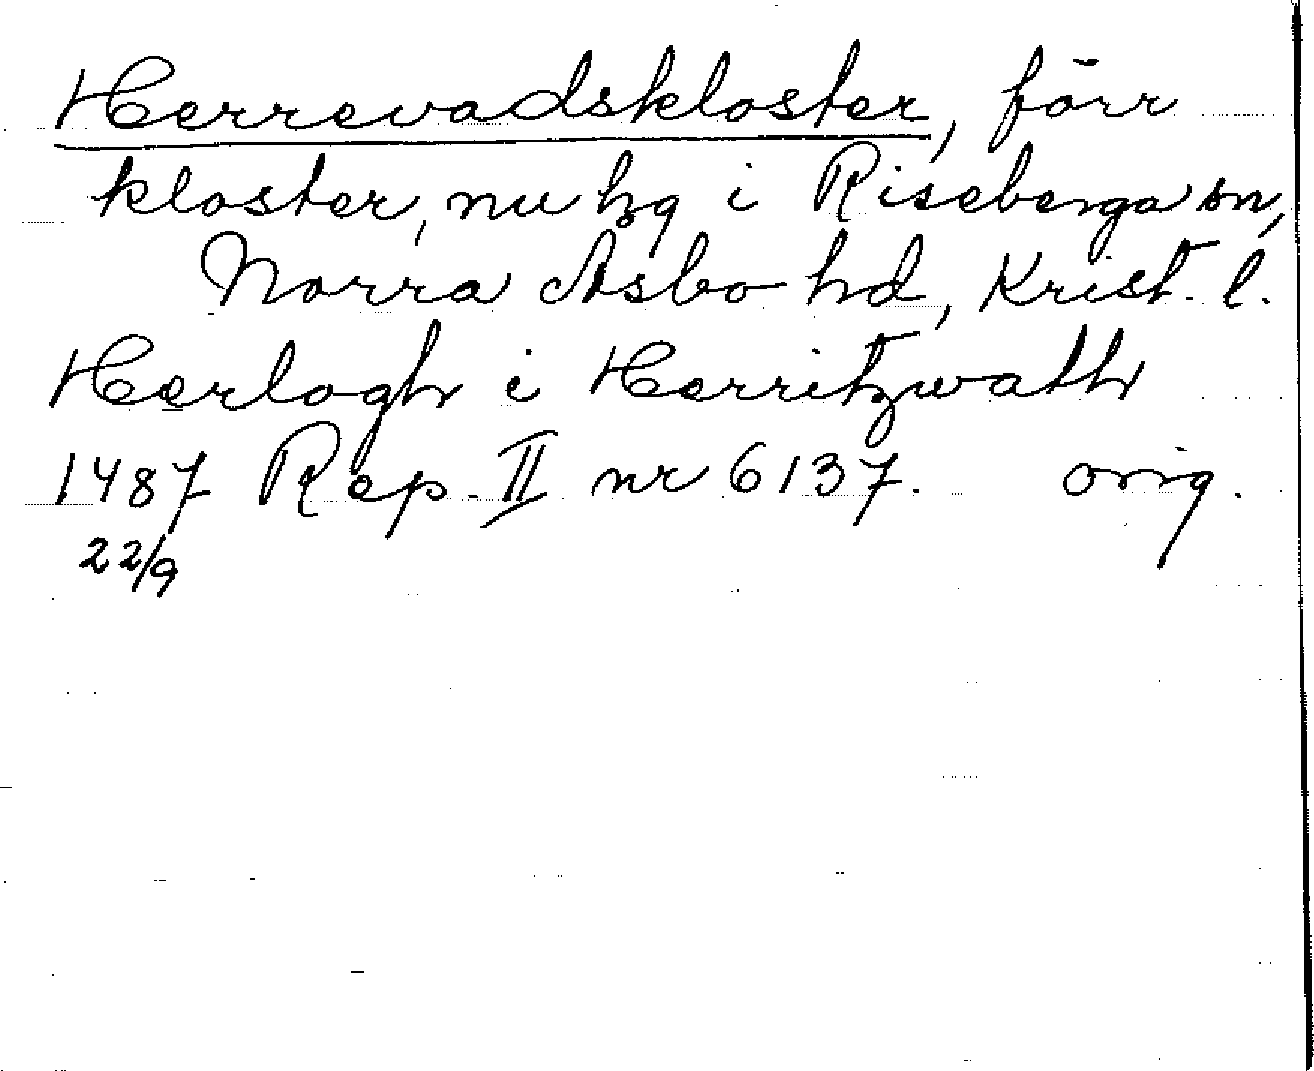 Herrevadskloster, förr
kloster, nu hg i Riseberga sn,
Norra Åsbo hd, Krist. l.
Herlogh i Herritzwath
1487 Rep. II nr 6137. orig.
22/9